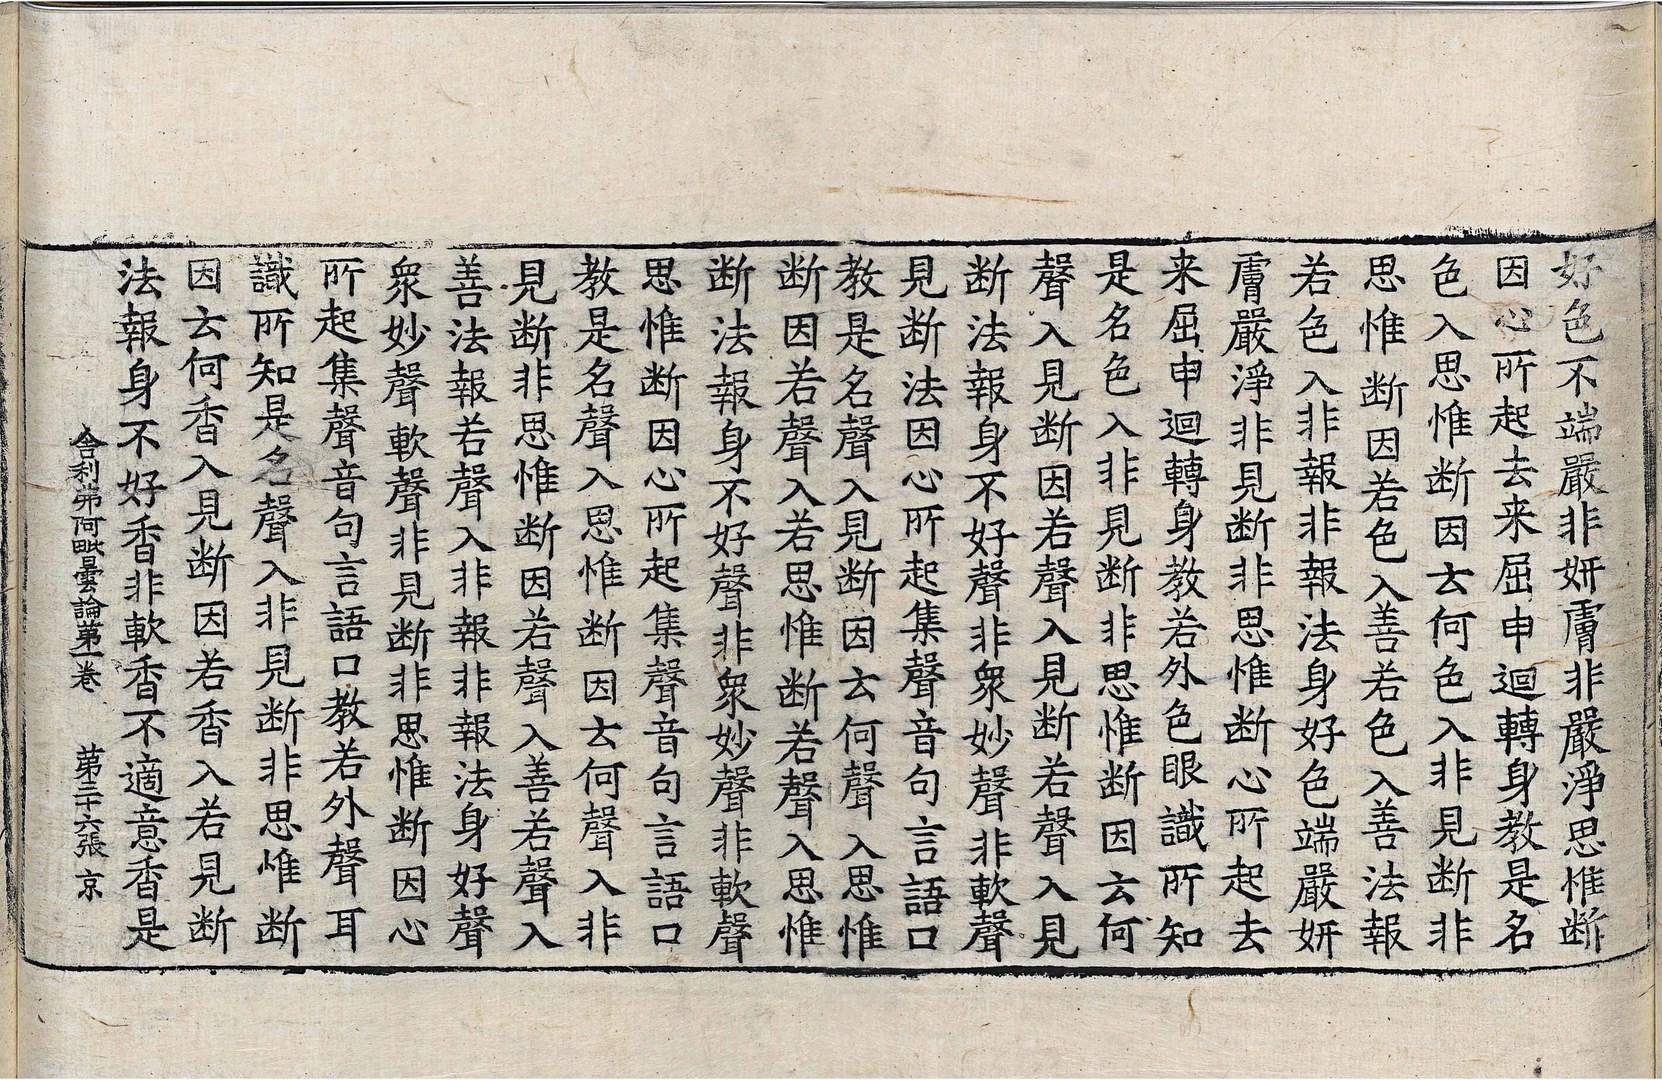 好色不端嚴非妍膚非嚴淨思惟断
因心所起去来屈申迴轉身教是名
色入思惟断因云何色入非見断非
思惟断因若色入善若色入善法報
若色入非報非報法身好色端嚴妍
膚嚴淨非見断非思惟断心所起去
来屈申迴轉身教若外色眼識所知
是名色入非見断非思惟断因云何
聲入見断因若聲入見断若聲入見
断法報身不好聲非衆妙聲非軟聲
見断法因心所起集聲音句言語口
教是名聲入見断因云何聲入思惟
断因若聲入若思惟断若聲入思惟
断法報身不好聲非衆妙聲非軟聲
思惟断因心所起集聲音句言語口
教是名聲入思惟断因云何聲入非
見断非思惟断因若聲入善若聲入
善法報若聲入非報非報法身好聲
衆妙聲軟聲非見断非思惟断因心
所起集聲音句言語口教若外聲耳
識所知是名聲入非見断非思惟断
因云何香入見断因若香入若見断
法報身不好香非軟香不適意香是
舍利弗阿毗曇論第一卷　第三十六張　京